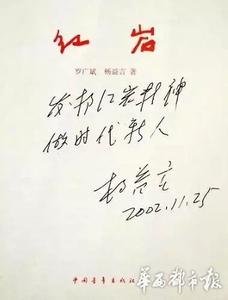 红岩
罗广斌 杨益言 著
发扬红岩精神
做时代新人
杨益言
2002.11.25
中国青年出版社
华西都市报